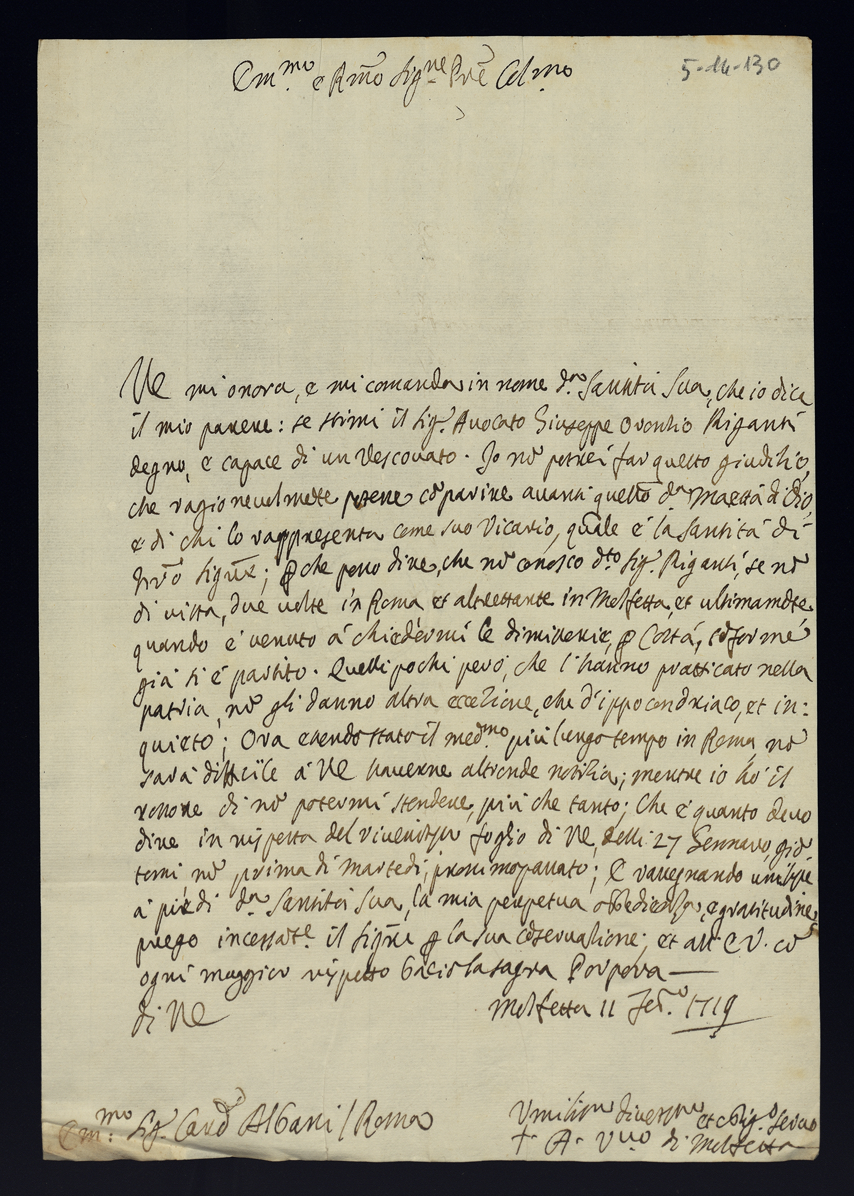 Em.mo e Rmo Sig.ne Pne Col.mo
5-14-130
VE mi onora, e mi comanda in nome d.a Santità Sua, che io dica
il mio parere: se stimi il Sig.r Avocato Giuseppe Orontio Riganti
degno, e capace di un Vescovato. Io nō potrei far questo giuditio,
che ragionevolmēte potere cōparire avanti questo d.a Maestà di Dio,
e di chi lo rappresenta come suo Vicario, quale è la Santità di
Nrō Sigrē; che posso dire, che nō conosco d.to Sig.r Riganti, se nō
di vista, due volte in Roma et altrettante in Molfetta, et ultimamēte
quando è venuto à chiedermi le dimissorie, Costà, cōforme
già si è partito. Quelli pochi però, che l'hanno pratticato nella
patria, nō gli danno altra eccezione, che d'ippocondriaco, et in:
quieto; Ora essendo stato il med.mo più lungo tempo in Roma nō
sarà difficile à VE haverne altronde notitia; mentre io hò il
rossore di nō potermi stendere, più che tanto; Che è quanto devo
dire in risposta del foglio di VE, delli 27 Gennaro,
tomi nō prima di Martedì, prossimo passato; E rassegnando
à piedi d.a Santità Sua, la mia perpetua obbedienza, e gratitudine,
prego incessāt.e il Sigrē la sua cōservatione; et all' E.V. cō
ogni maggior rispetto bacio la sagra Porpora —
di VE Molfetta 11 Feb.o 1719
Em.mo Sig.r Card. Albani / Roma
Umiliss.mo divotiss.mo et oblig.o Servo
+ A. V.vo di Molfetta